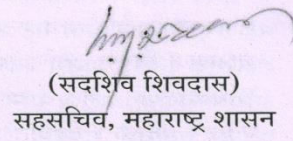 (सदशिव शिवदास)
सहसचिव, महाराष्ट्र शासन